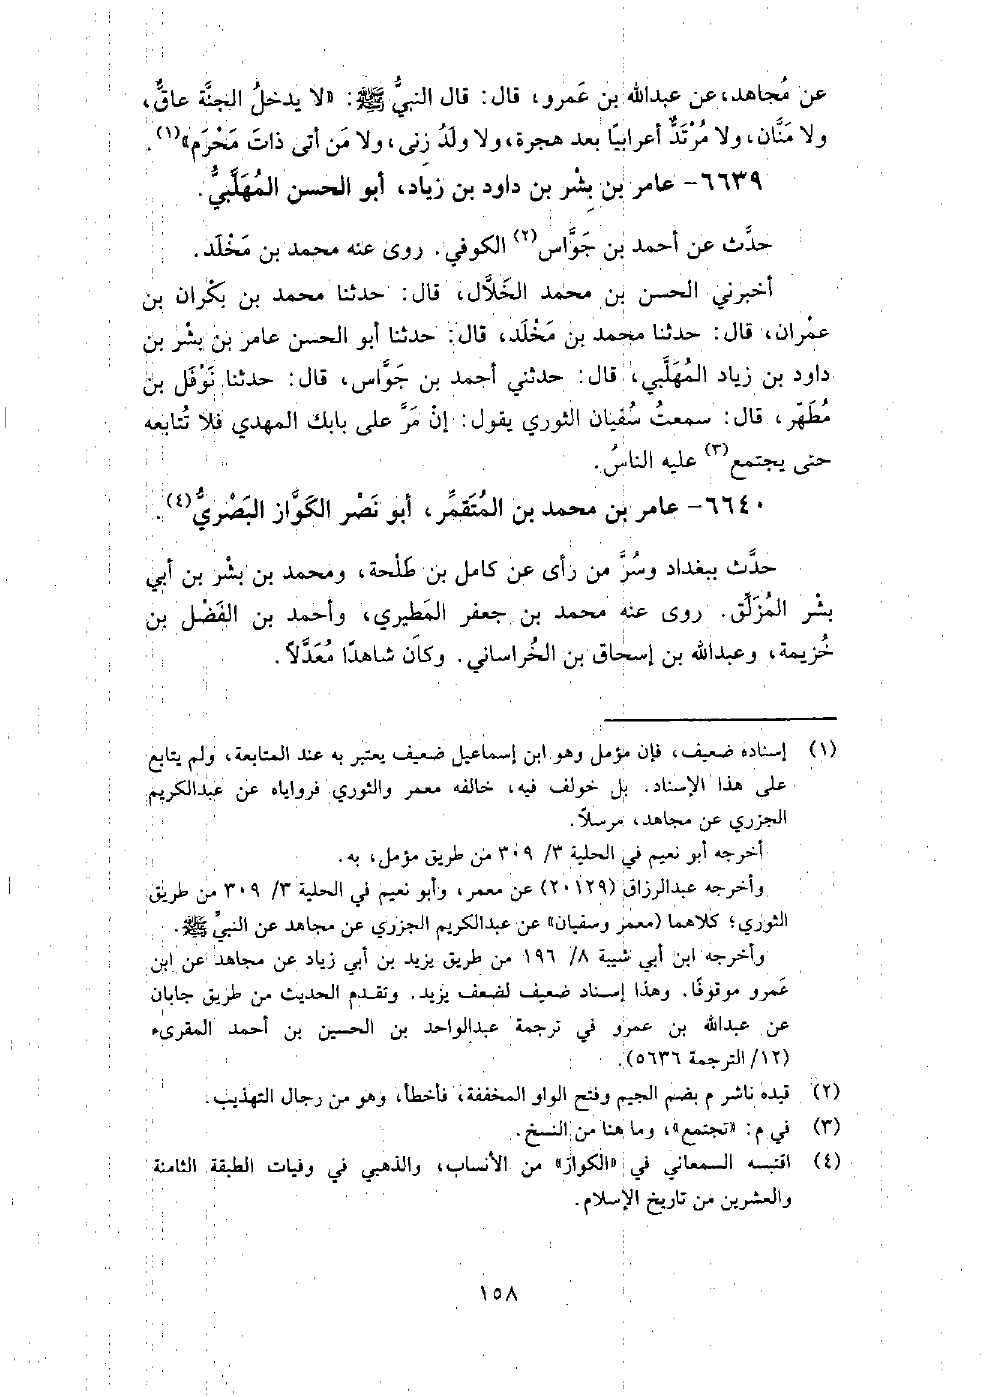 عن مُجاهد، عن عبدالله بن عَمرو، قال: قال النبيُّ ﷺ: «لا يدخلُ الجنَّة عاقٌّ،
ولا مَنَّان، ولا مُرْتَدٌّ أعرابيًا بعد هجرة، ولا ولَدُ زِنى، ولا مَن أتى ذاتَ مَحْرَم»(١).
٦٦٣٩- عامر بن بِشْر بن داود بن زياد، أبو الحسن المُهَلَّبيُّ.
حدَّث عن أحمد بن جَوَّاس(٢) الكوفي. روى عنه محمد بن مَخْلَد.
أخبرني الحسن بن محمد الخَلَّال، قال: حدثنا محمد بن بَكْران بن
عمْران، قال: حدثنا محمد بن مَخْلَد، قال: حدثنا أبو الحسن عامر بن بِشْر بن
داود بن زياد المُهَلَّبي، قال: حدثني أحمد بن جَوَّاس، قال: حدثنا نَوْفَل بن
مُطَهّر، قال: سمعتُ سُفيان الثوري يقول: إنْ مَرَّ على بابك المهدي فلا تُتابعه
حتى يجتمع(٣) عليه الناسُ.
٦٦٤٠- عامر بن محمد بن المُتَقمِّر، أبو نَصْر الكَوَّاز البَصْريُّ(٤).
حدَّث ببغداد وسُرَّ من رأى عن كامل بن طَلْحة، ومحمد بن بشْر بن أبي
بشْر المُزَلَّق. روى عنه محمد بن جعفر المَطيري، وأحمد بن الفَضْل بن
خُزيمة، وعبدالله بن إسحاق بن الخُراساني. وكان شاهدًا مُعَدَّلاً.
(١) إسناده ضعيف، فإن مؤمل وهو ابن إسماعيل ضعيف يعتبر به عند المتابعة، ولم يتابع
على هذا الإسناد. بل خولف فيه، خالفه معمر والثوري فروياه عن عبدالكريم
الجزري عن مجاهد، مرسلاً.
أخرجه أبو نعيم في الحلية ٣/ ٣٠٩ من طريق مؤمل، به.
وأخرجه عبدالرزاق (٢٠١٢٩) عن معمر، وأبو نعيم في الحلية ٣/ ٣٠٩ من طريق
الثوري؛ كلاهما (معمر وسفيان» عن عبدالكريم الجزري عن مجاهد عن النبيِّ ﷺ.
وأخرجه ابن أبي شيبة ٨/ ١٩٦ من طريق يزيد بن أبي زياد عن مجاهد عن ابن
عَمرو موقوفًا. وهذا إسناد ضعيف لضعف يزيد. وتقدم الحديث من طريق جابان
عن عبدالله بن عمرو في ترجمة عبدالواحد بن الحسين بن أحمد المقرىء
(١٢/ الترجمة ٥٦٣٦).
(٢) قيده ناشر م بضم الجيم وفتح الواو المخففة، فأخطأ، وهو من رجال التهذيب.
(٣) في م: «تجتمع»، وما هنا من النسخ.
(٤) اقتبسه السمعاني في «الكواز» من الأنساب، والذهبي في وفيات الطبقة الثامنة
والعشرين من تاريخ الإسلام.
١٥٨